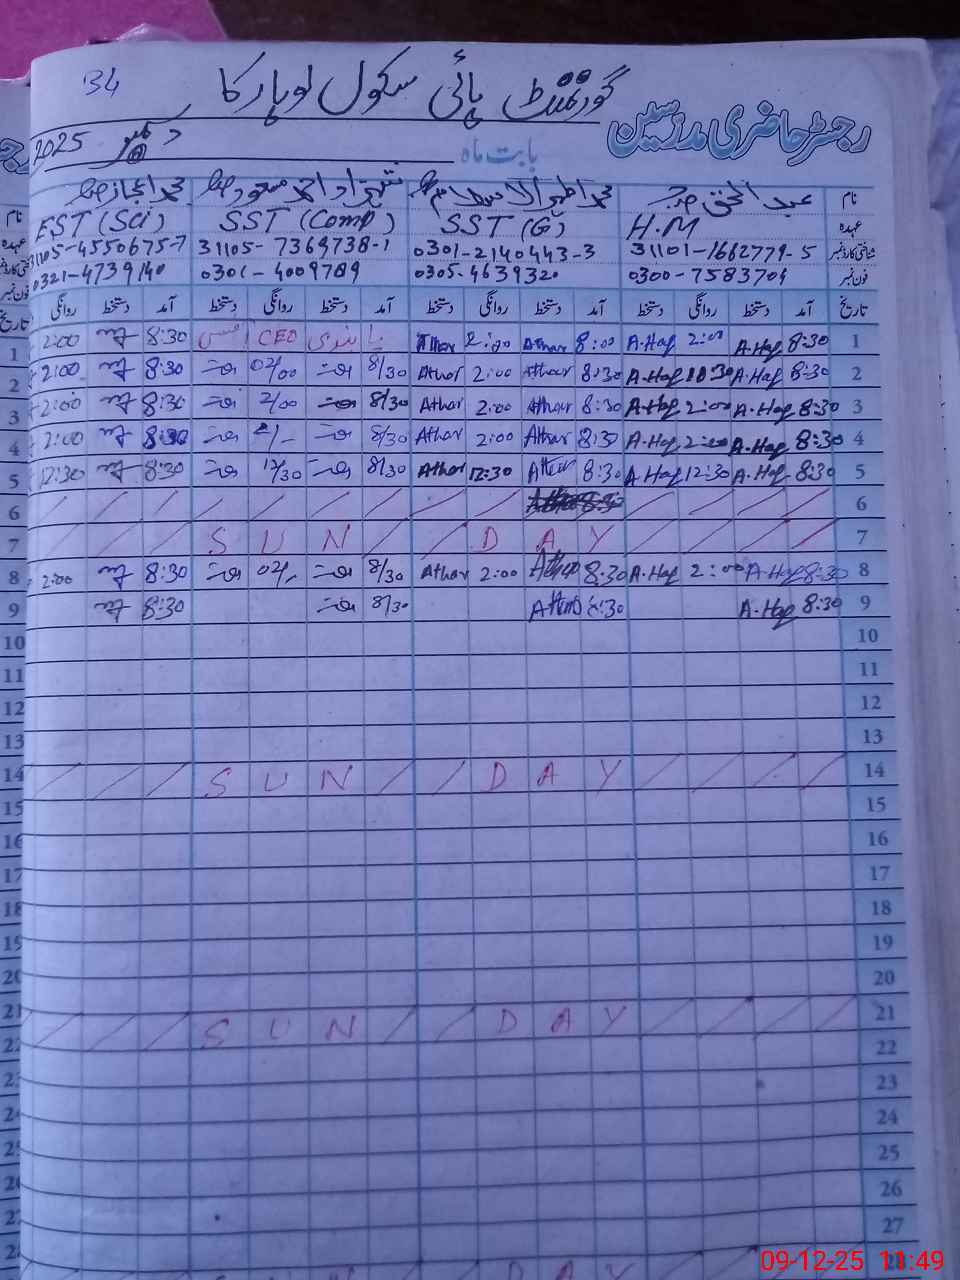 34
گورنمنٹ ہائی سکول لوہارکا
رجسٹر حاضری مدرسین
بابت ماہ دسمبر 2025
نام عبدالحق صاحب محمد اطہر الاسلام صاحب شہزاد احمد مسعود صاحب محمد اعجاز صاحب
عہدہ H.M SST (G) SST (Comp) EST (Sci)
شناختی کارڈ نمبر 31101-1662779-5 0301-2140443-3 31105-7369738-1 31105-4550675-7
فون نمبر 0300-7583709 0305-4639320 0301-4009789 0321-4739140
تاریخ آمد دستخط روانگی دستخط آمد دستخط روانگی دستخط آمد دستخط روانگی دستخط آمد دستخط روانگی تاریخ
1 8:30 A.Haq 2:00 A.Haq 8:00 Athar 2:00 Athar پابندی CEO آفس 8:30 2:00 1
2 8:30 A.Haq 10:30 A.Haq 8:30 Athar 2:00 Athar 8/30 02/00 8:30 2:00 2
3 8:30 A.Haq 2:00 A.Haq 8:30 Athar 2:00 Athar 8/30 2/00 8:30 2:00 3
4 8:30 A.Haq 2:00 A.Haq 8:30 Athar 2:00 Athar 8/30 2/- 8:30 2:00 4
5 8:30 A.Haq 12:30 A.Haq 8:30 Athar 12:30 Athar 8/30 12/30 8:30 12:30 5
6 6
7 S U N D A Y 7
8 8:30 A.Haq 2:00 A.Haq 8:30 Athar 2:00 Athar 8/30 02/- 8:30 2:00 8
9 8:30 A.Haq 8:30 Athar 8/30 8:30 9
10 10
11 11
12 12
13 13
14 S U N D A Y 14
15 15
16 16
17 17
18 18
19 19
20 20
21 S U N D A Y 21
22 22
23 23
24 24
25 25
26 26
27 27
28 S U N D A Y
09-12-25 11:49